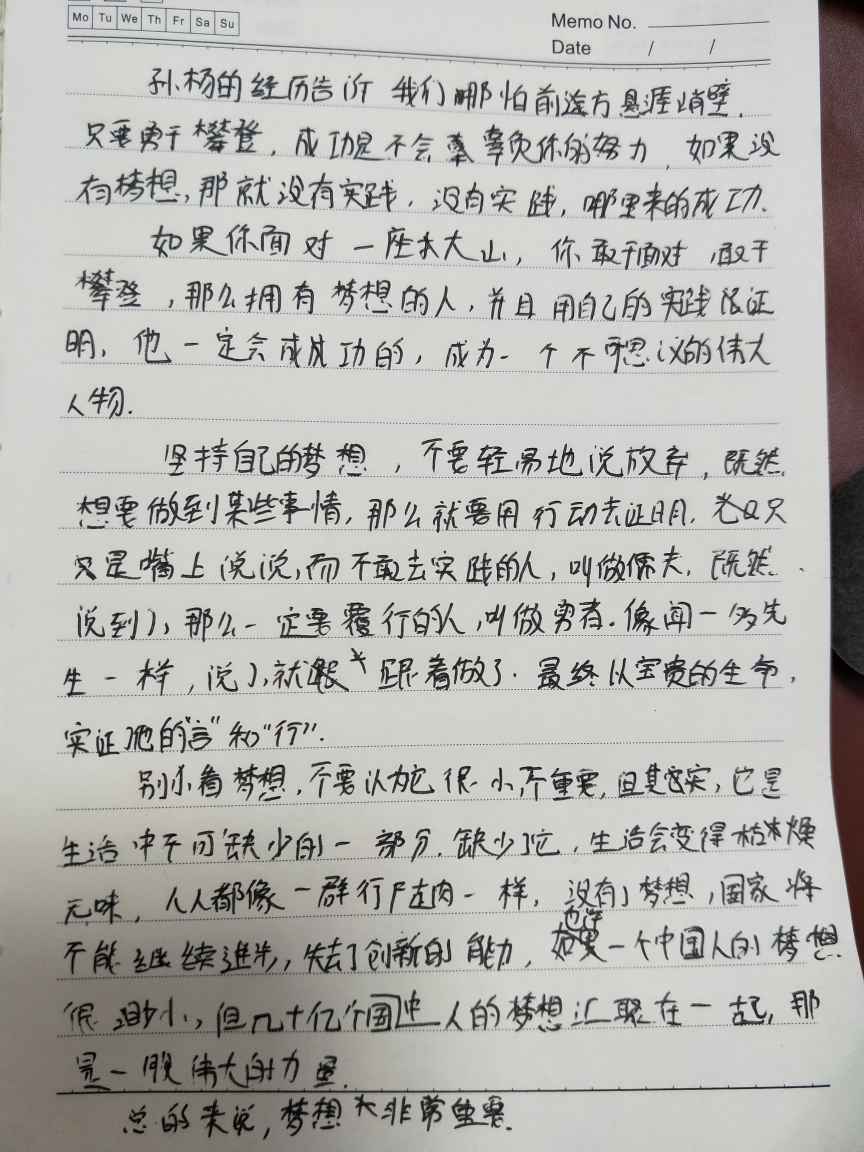 Mo Tu We Th Fr Sa Su
Memo No.
Date / /
孙杨的经历告诉我们哪怕前途方悬涯峭壁.
只要勇于攀登,成功是不会辜负你的努力,如果没
有梦想,那就没有实践,没有实践,哪里来的成功.
如果你面对一座大山,你敢于面对,敢于
攀登,那么拥有梦想的人,并且用自己的实践很证
明,他一定会成功的,成为一个不可思议的伟大
人物.
坚持自己的梦想,不要轻易地说放弃,既然
想要做到某些事情,那么就要用行动去证明.光只
只是嘴上说说,而不敢去实践的人,叫做懦夫.既然
说到了,那么一定要覆行的人,叫做勇者.像闻一多先
生一样,说了,就跟着做了.最终以宝贵的生命,
实证了他的“言”和“行”.
别小看梦想,不要认为它很小,不重要,但其实,它是
生活中不可缺少的一部分.缺少了它,生活会变得枯燥
无味,人人都像一群行尸走肉一样,没有了梦想,国家将
不能继续进步,失去了创新的能力,也许一个中国人的梦想
很渺小,但几十亿个中国人的梦想汇聚在一起,那
是一股伟大的力量.
总的来说,梦想非常重要.